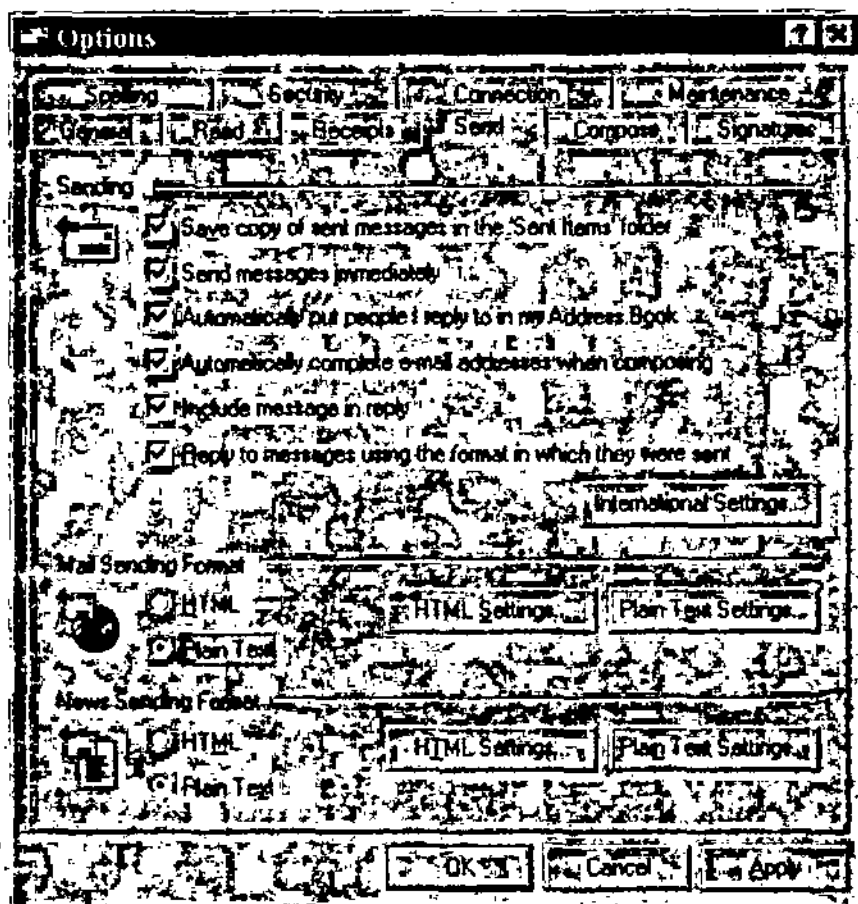 Options
Spelling Security Connection Maintenance
General Read Receipts Send Compose Signatures
Sending
Save copy of sent messages in the 'Sent Items' folder
Send messages immediately
Automatically put people I reply to in my Address Book
Automatically complete e-mail addresses when composing
Include message in reply
Reply to messages using the format in which they were sent
International Settings...
Mail Sending Format
HTML HTML Settings... Plain Text Settings...
Plain Text
News Sending Format
HTML HTML Settings... Plain Text Settings...
Plain Text
OK Cancel Apply